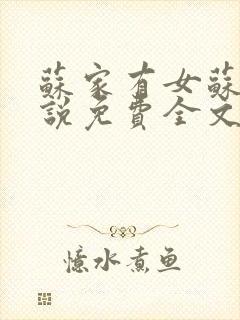 蘇家有女蘇
說免費全文
憶水煮鱼